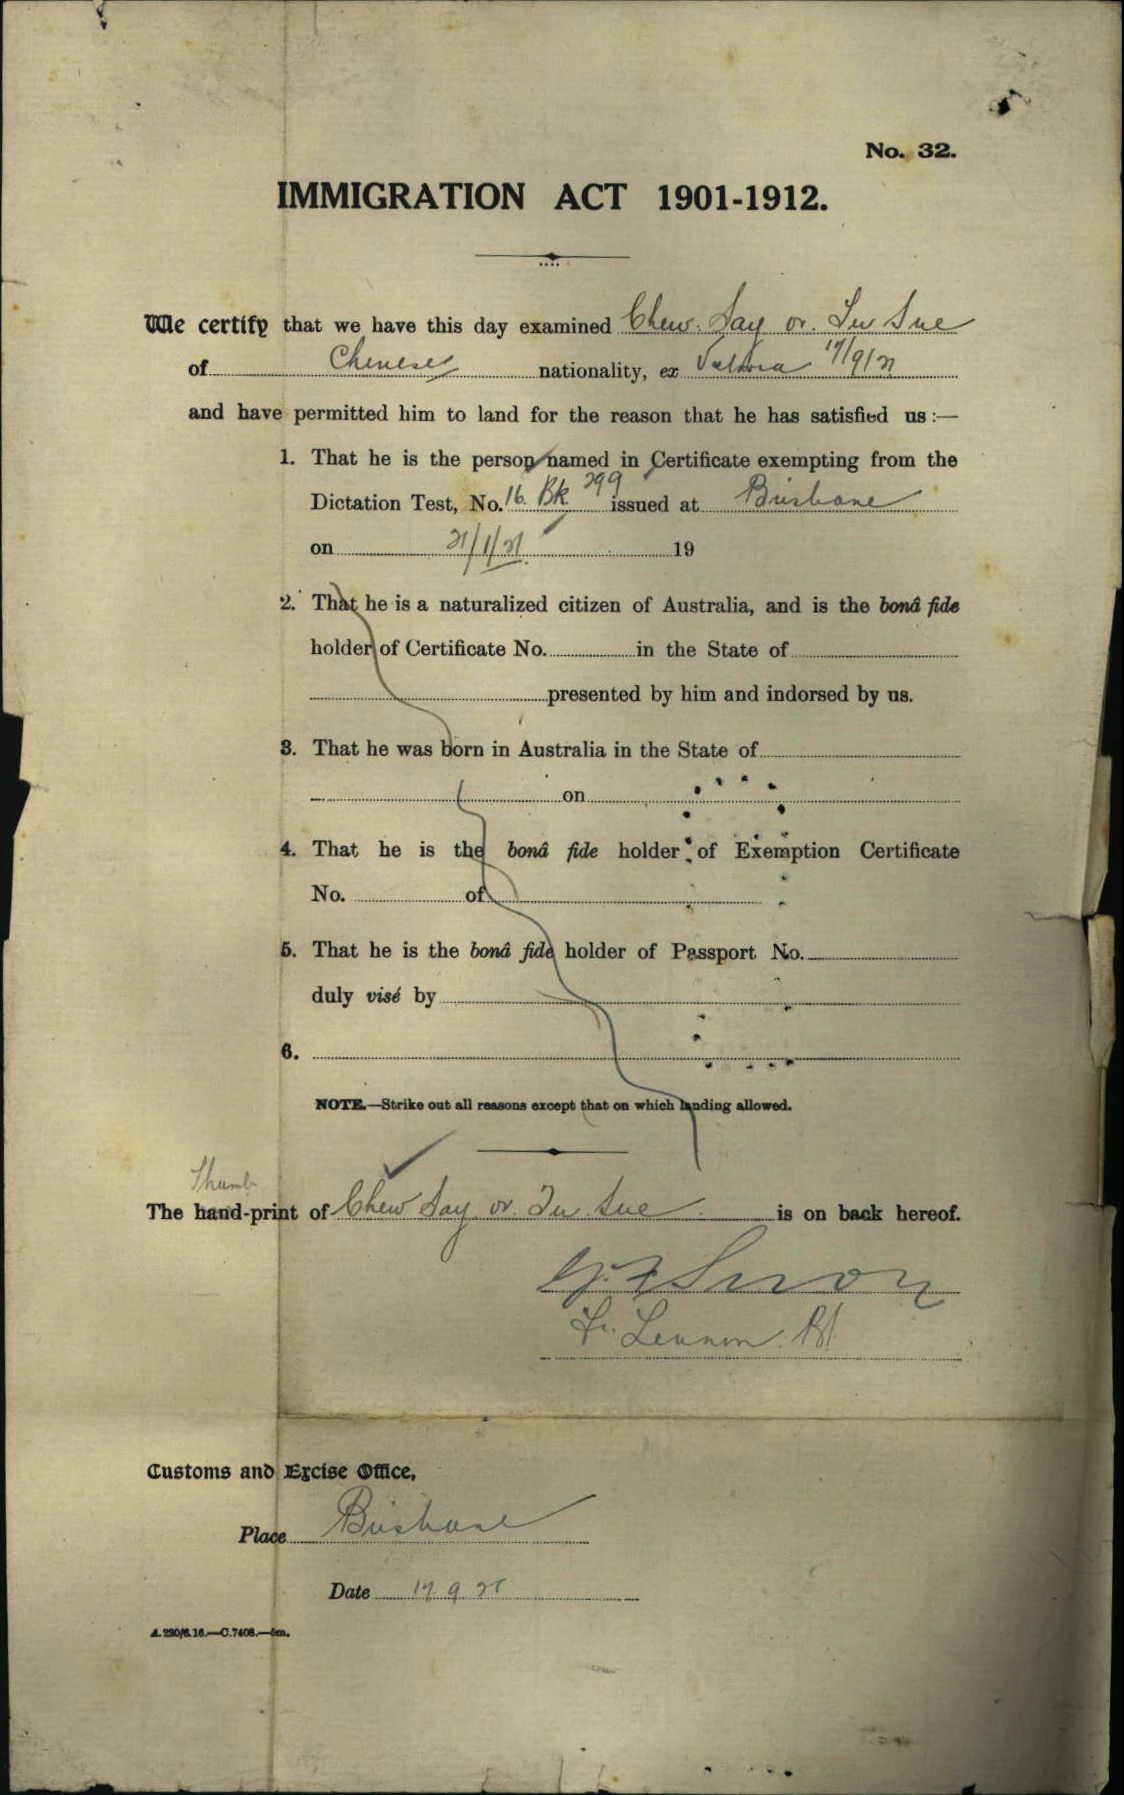 No. 32.
IMMIGRATION ACT 1901-1912.
We certify that we have this day examined Chew Say or Tu Sue
of Chinese nationality, ex Victoria 17/9/21
and have permitted him to land for the reason that he has satisfied us:—
1. That he is the person named in Certificate exempting from the
Dictation Test, No. 16 Bk 299 issued at Brisbane
on 21/1/21 19
2. That he is a naturalized citizen of Australia, and is the bonâ fide
holder of Certificate No. in the State of
presented by him and indorsed by us.
3. That he was born in Australia in the State of
on
4. That he is the bonâ fide holder of Exemption Certificate
No. of
5. That he is the bonâ fide holder of Passport No.
duly visé by
6.
NOTE.—Strike out all reasons except that on which landing allowed.
Thumb
The hand-print of Chew Say or Tu Sue is on back hereof.
F. Lennon
Customs and Excise Office,
Place Brisbane
Date 17 9 21
A.230/6.16.—C.7408.—5m.